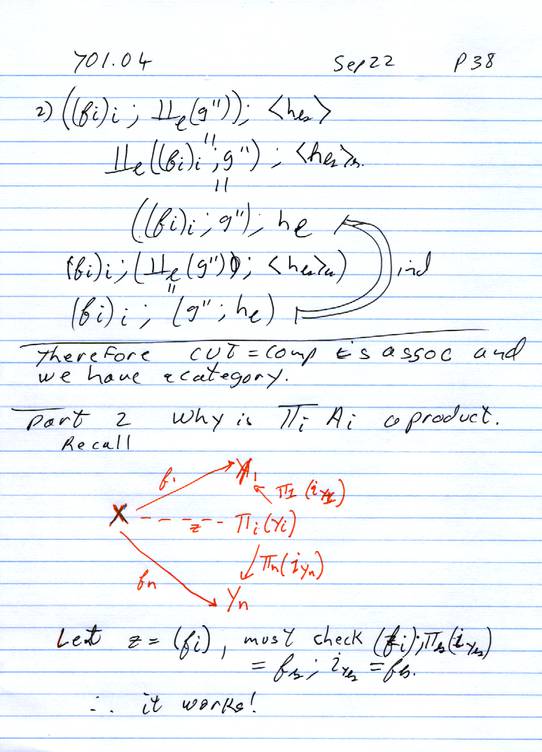 701.04 Sep 22 P38
2) ((fi)i ; ⨿e(g")); <hes>
=
⨿e((fi)i ; g") ; <hes>s.
=
((fi)i ; g") ; he
(fi)i ; (⨿e(g") ; <hes>s) ind
=
(fi)i ; (g" ; he)
Therefore CUT = comp is assoc and
we have a category.
Part 2 Why is Πi Ai a product.
Recall
f1 Y1
Π1(iY1)
X z Πi(Yi)
Πn(iYn)
fn Yn
Let z = (fi), must check (fi);Πs(iYs)
= fs ; iYs = fs.
∴ it works!